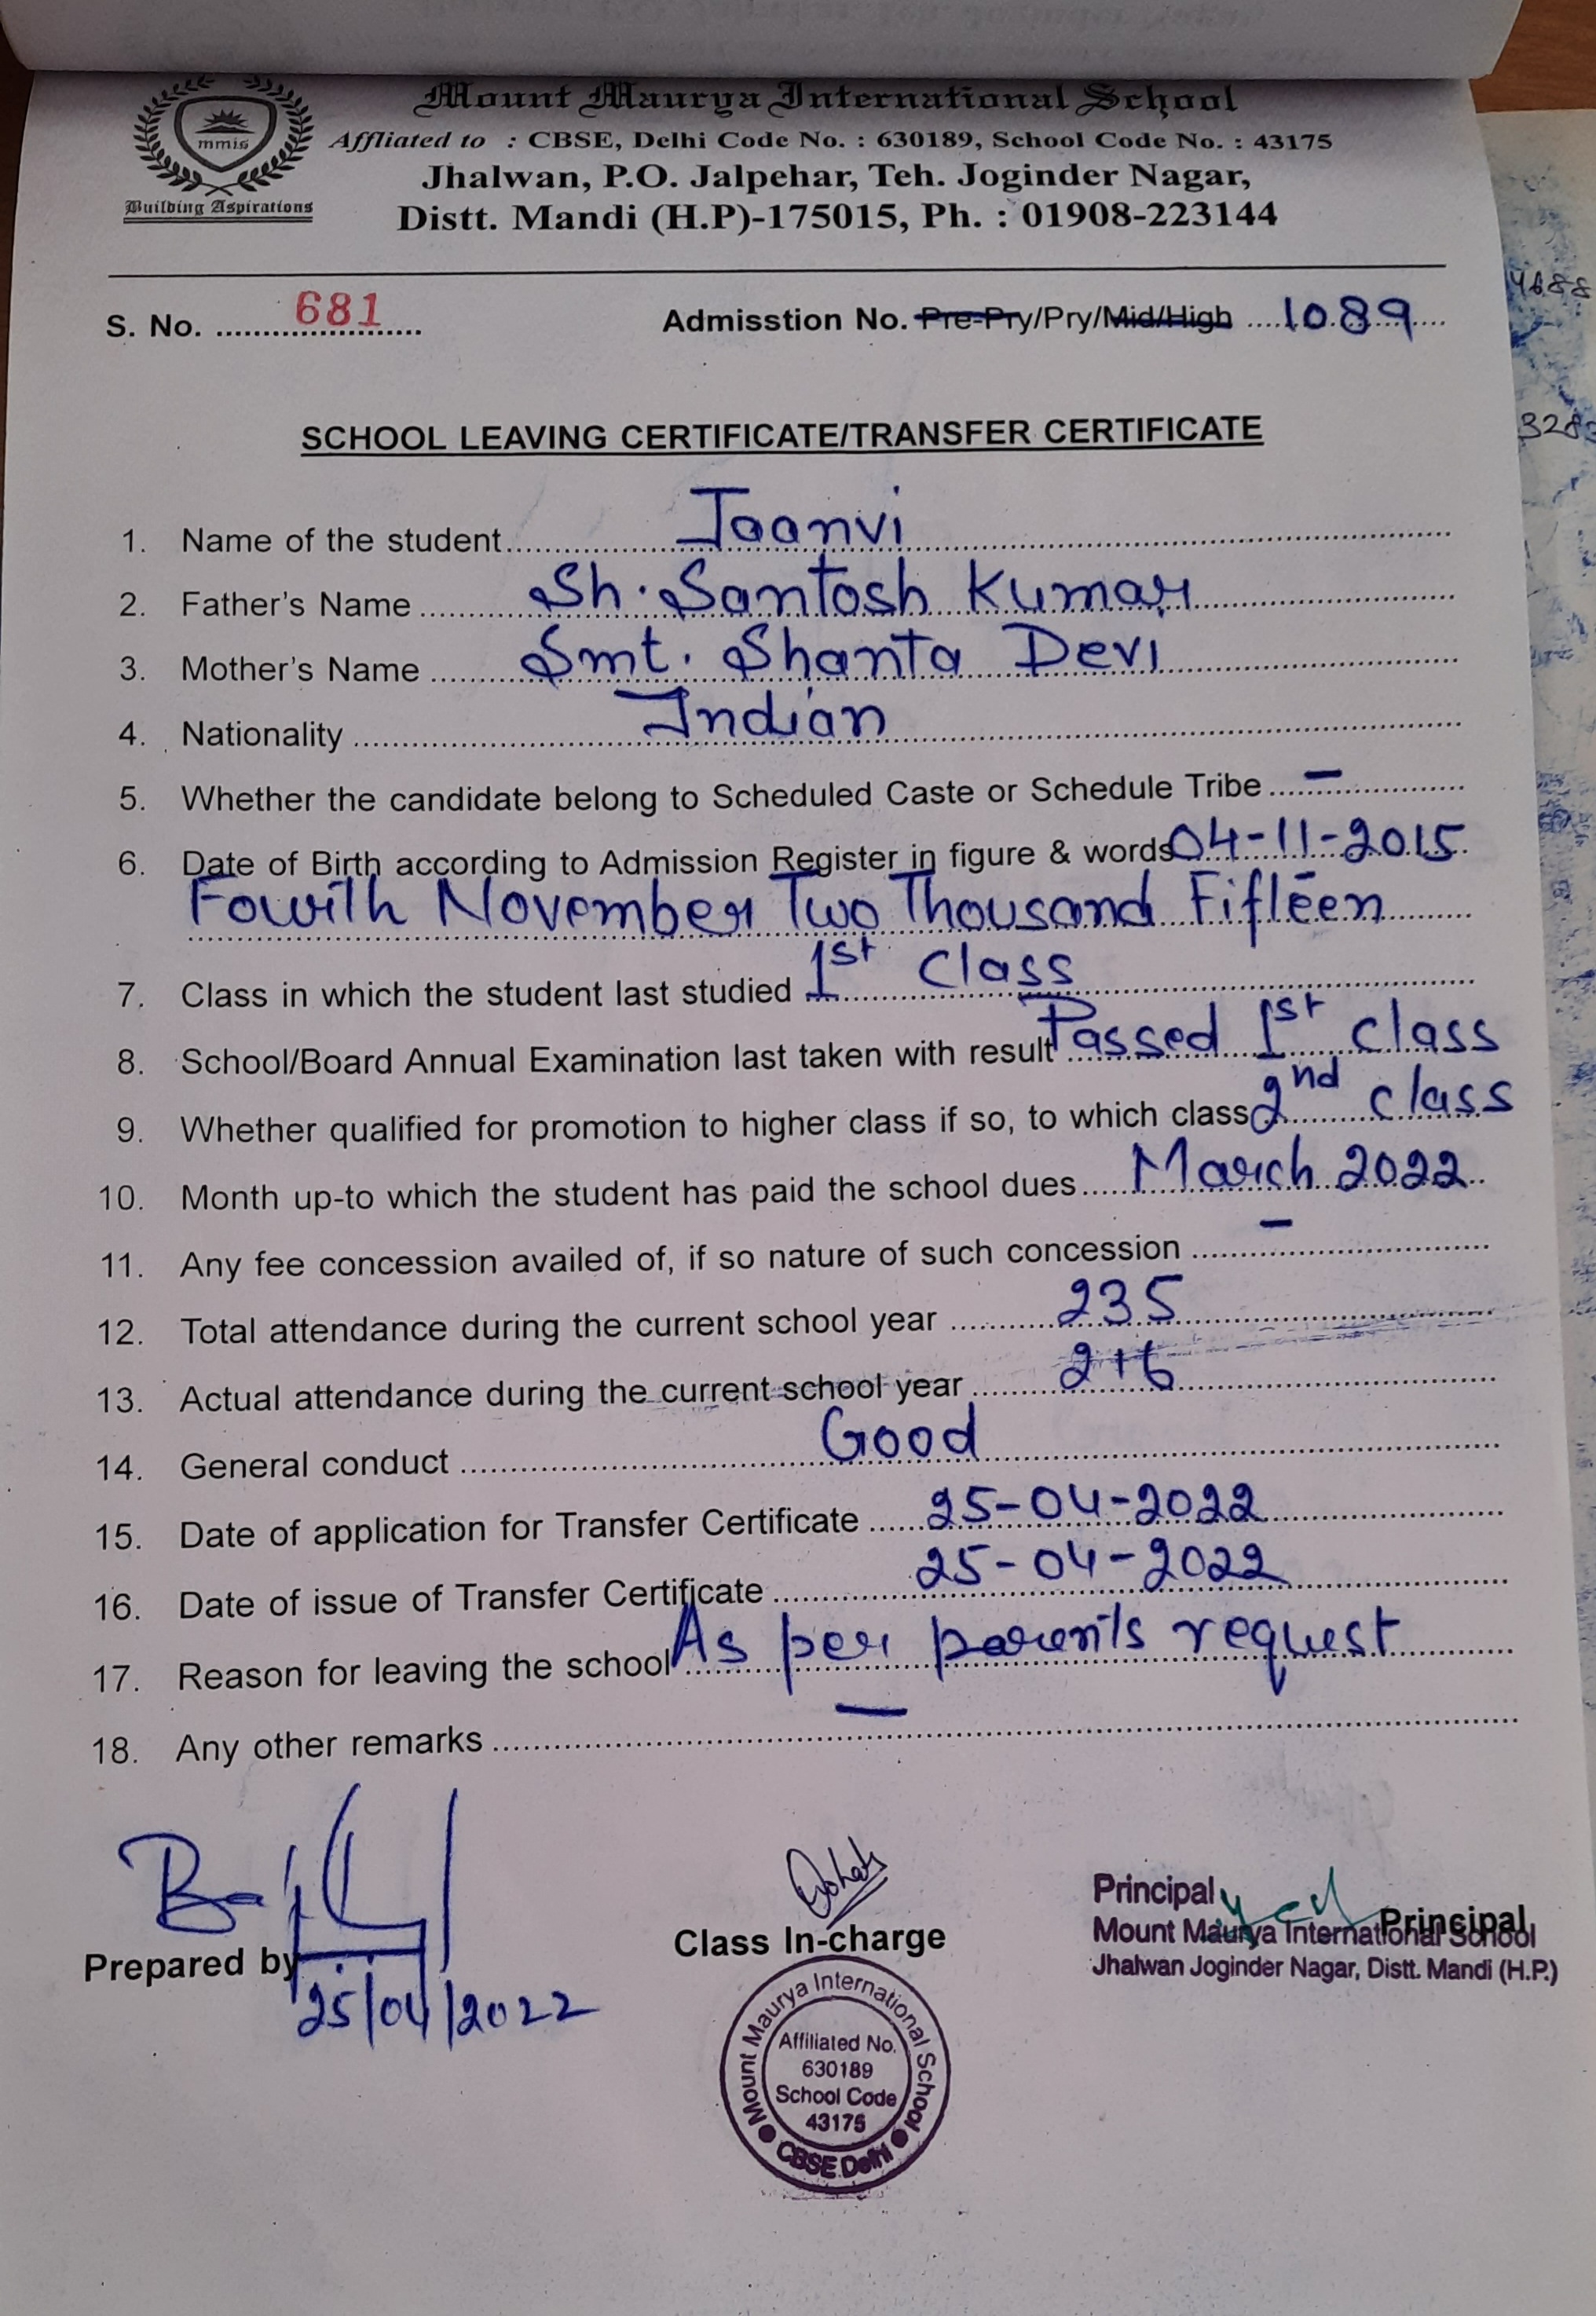 Mount Maurya International School
mmis
Building Aspirations
Affliated to : CBSE, Delhi Code No. : 630189, School Code No. : 43175
Jhalwan, P.O. Jalpehar, Teh. Joginder Nagar,
Distt. Mandi (H.P)-175015, Ph. : 01908-223144
S. No. 681
Admisstion No. Pre-Pry/Pry/Mid/High 1089
SCHOOL LEAVING CERTIFICATE/TRANSFER CERTIFICATE
1. Name of the student Jaanvi
2. Father's Name Sh. Santosh Kumar
3. Mother's Name Smt. Shanta Devi
4. Nationality Indian
5. Whether the candidate belong to Scheduled Caste or Schedule Tribe –
6. Date of Birth according to Admission Register in figure & words 04-11-2015
Fourth November Two Thousand Fifteen
7. Class in which the student last studied 1st Class
8. School/Board Annual Examination last taken with result Passed 1st class
9. Whether qualified for promotion to higher class if so, to which class 2nd class
10. Month up-to which the student has paid the school dues March 2022
11. Any fee concession availed of, if so nature of such concession –
12. Total attendance during the current school year 235
13. Actual attendance during the current school year 216
14. General conduct Good
15. Date of application for Transfer Certificate 25-04-2022
16. Date of issue of Transfer Certificate 25-04-2022
17. Reason for leaving the school As per parents request
18. Any other remarks —
Prepared by
25/04/2022
Class In-charge
Principal
Principal
Mount Maurya International School
Jhalwan Joginder Nagar, Distt. Mandi (H.P.)
Mount Maurya International School
Affiliated No.
630189
School Code
43175
CBSE Delhi